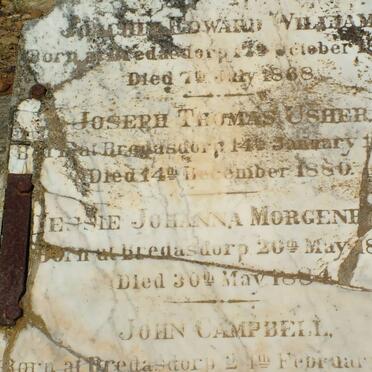 Edward William
Born at Bredasdorp 17th October
Died 7th July 1868.
Joseph Thomas Usher,
at Bredasdorp 14th January
Died 14th December 1880.
Johanna Morgen
Born at Bredasdorp 20th May
Died 30th May 1884
John Campbell,
Born at Bredasdorp